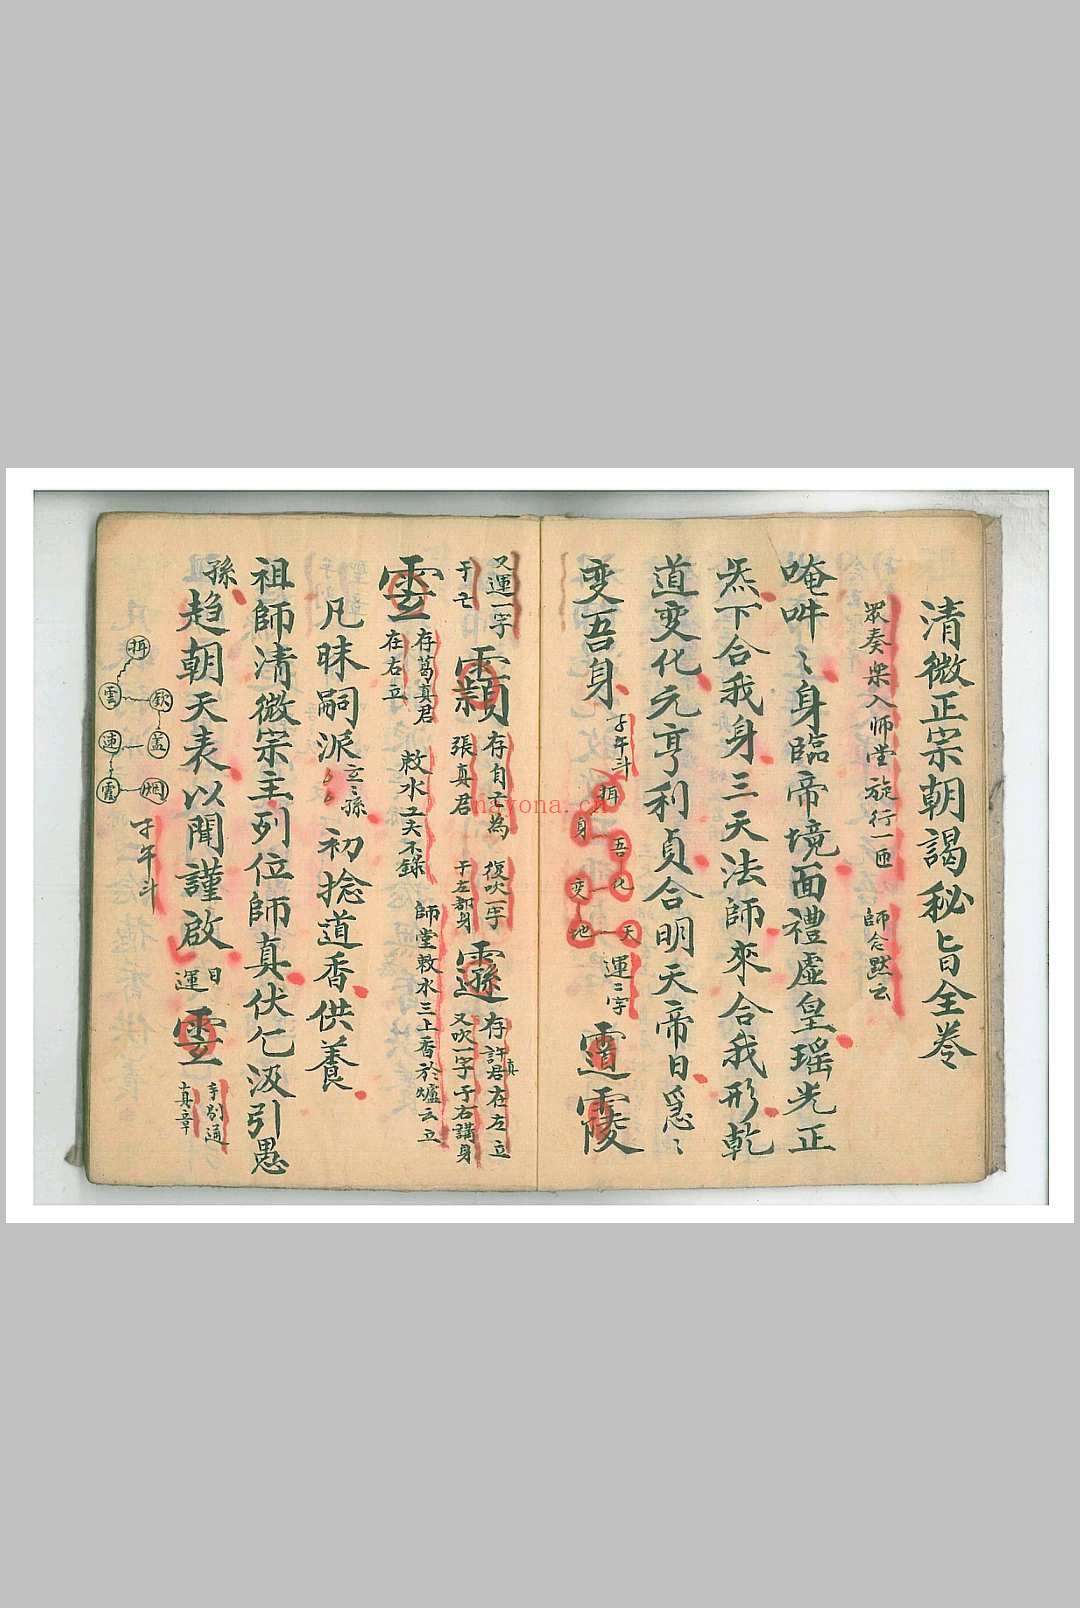 清微正宗朝謁秘旨全巻
眾奏樂入师堂旋行一匝 師念默云
唵吽〻身臨帝境面禮虛皇瑶光正
炁下合我身三天法師來合我形乾
道变化元亨利貞合明天帝日〻
变吾身 子午斗
身 吾
变 化
地 天
運二字
又運一字
于
存自亡為
張真君
復吹一字
于左部身
存許真君在左立
又吹一字于右講身
存葛真君
在右立
敕水 不錄
師堂敕水三上香於爐云立
凡昧嗣派 孫 初捻道香供養
祖師清微宗主列位師真伏乞汲引愚
孫趋朝天表以聞謹啟 日運
手別通
真章
雲
蓋
連
霞 烟
子午斗
nayona.cn